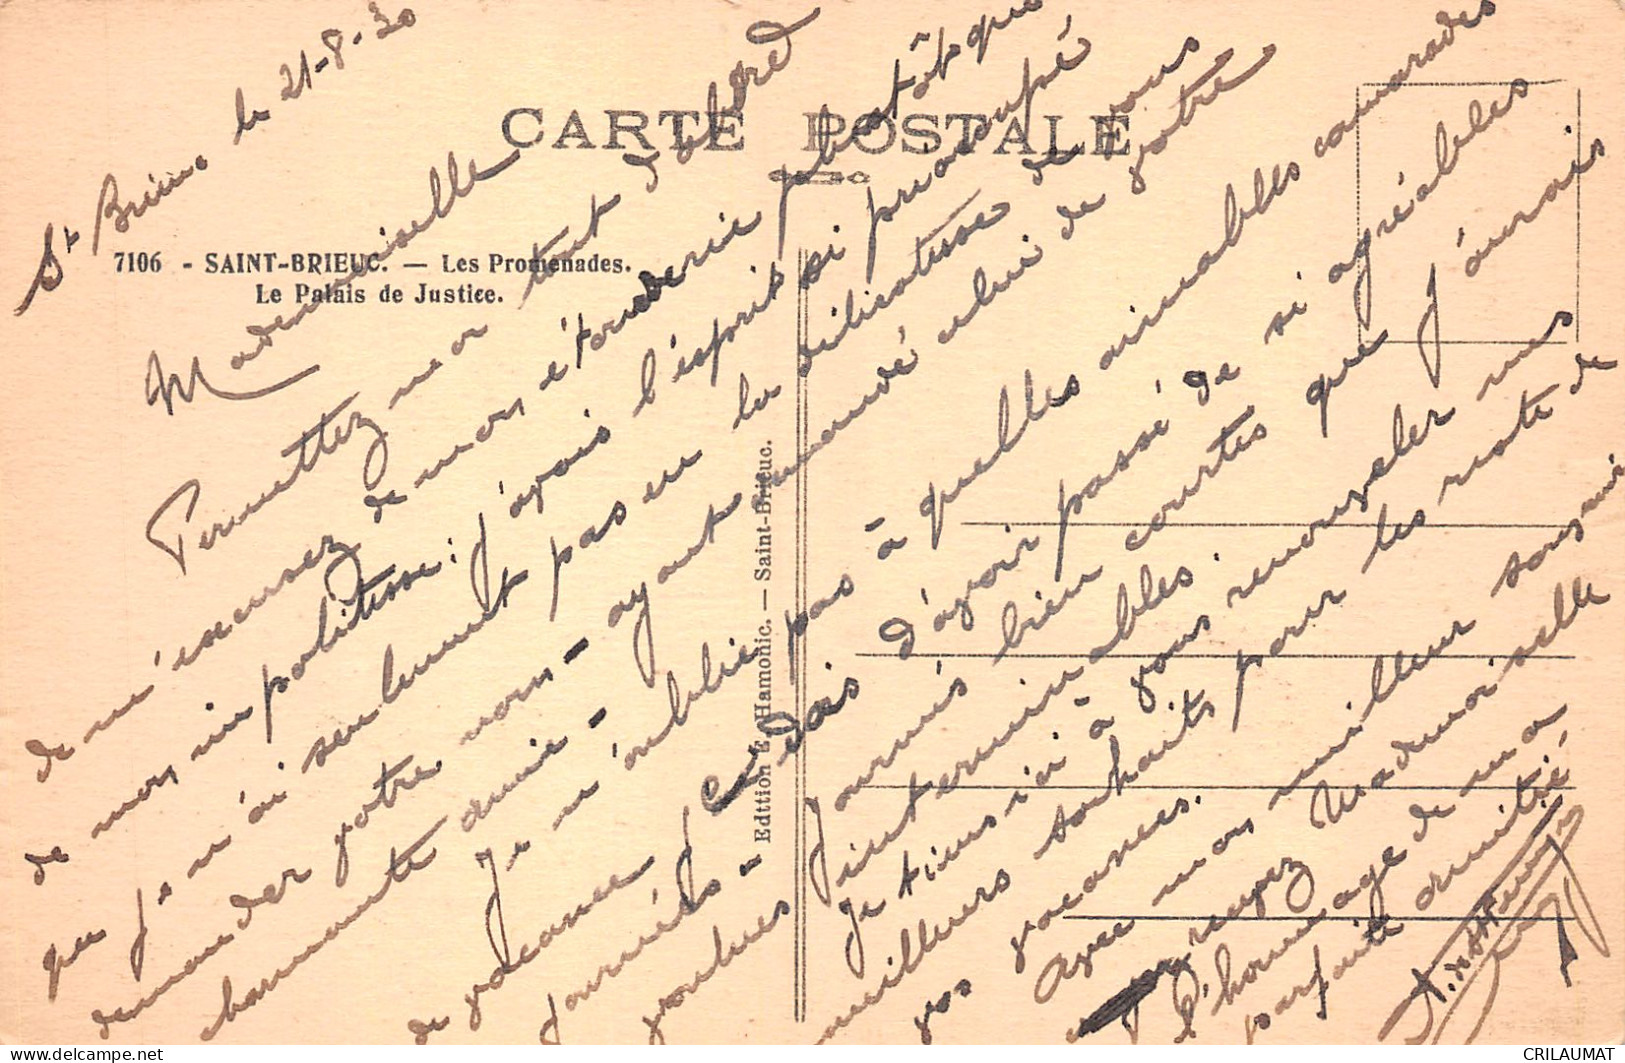 CARTE POSTALE
7106 - SAINT-BRIEUC. — Les Promenades.
Le Palais de Justice.
Edition E. Hamonic. — Saint-Brieuc.
St Brieuc le 21-8-30
Mademoiselle
Permettez moi tout d'abord
de m'excuser de mon étourderie plutôt que
de mon impolitesse: j'avais l'esprit si préoccupé
que je n'ai seulement pas eu la délicatesse de vous
demander votre nom - ayant demandé celui de votre
charmante amie -
Je n'oublie pas à quelles aimables camarades
de vacances je dois d'avoir passé de si agréables
journées - journées bien courtes que j'aurais
voulues interminables.
Je tiens ici à vous renouveler mes
meilleurs souhaits pour le reste de
vos vacances.
Avec mon meilleur souvenir
recevez Mademoiselle
l'hommage de ma
parfaite amitié.
CRILAUMAT